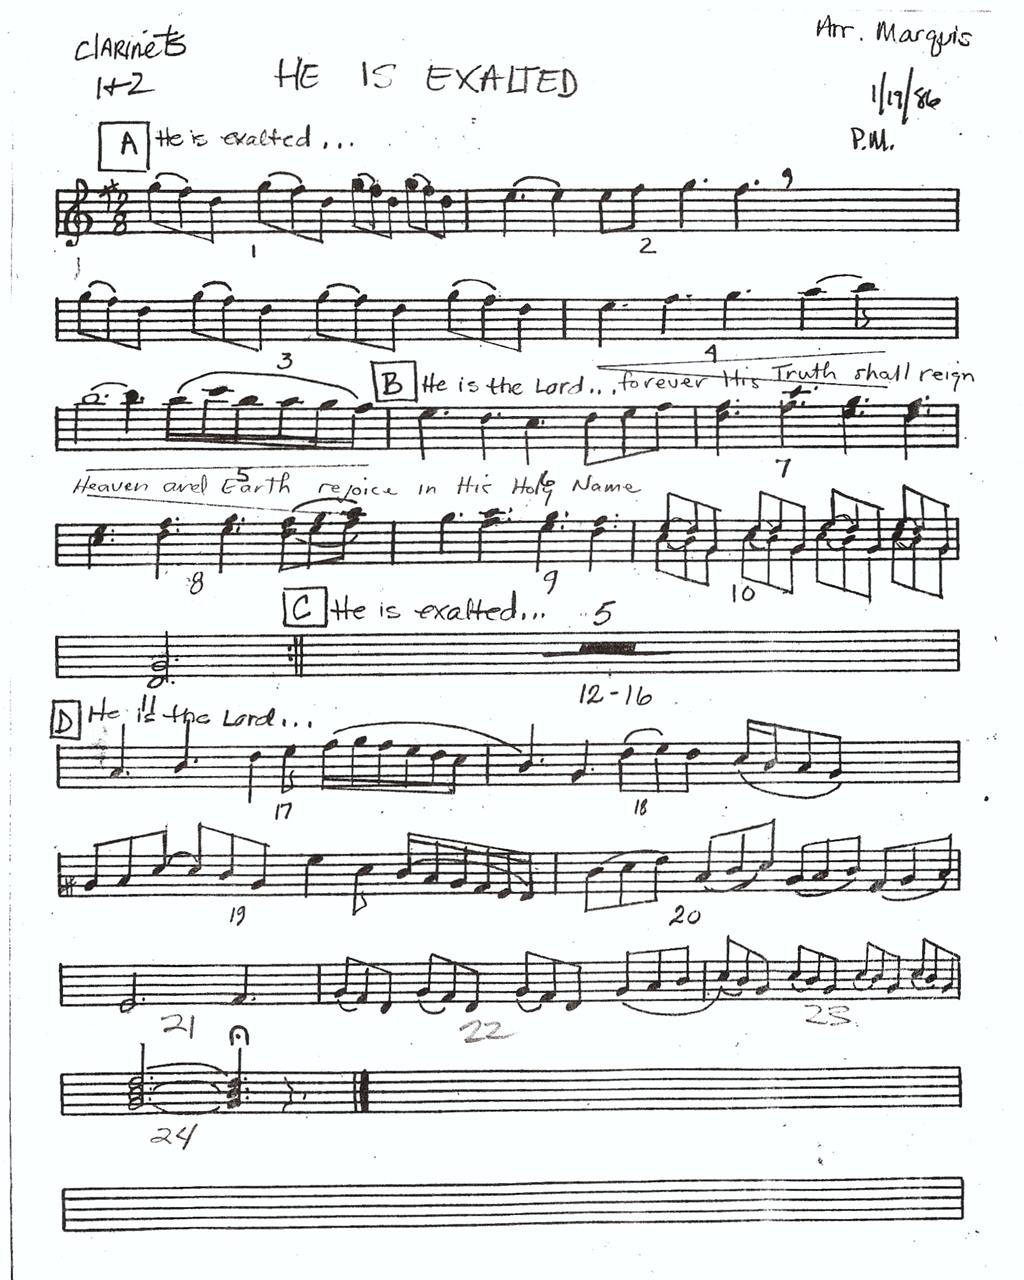 Clarinets
1+2
HE IS EXALTED
Arr. Marquis
1/19/86
P.M.
A He is exalted...
12
8
1
1 2
3 4
B He is the Lord... forever His Truth shall reign
5 6 7
Heaven and Earth rejoice in His Holy Name
8 9 10
C He is exalted... 5
11 12-16
D He is the Lord...
17 18
19 20
21 22 23
24